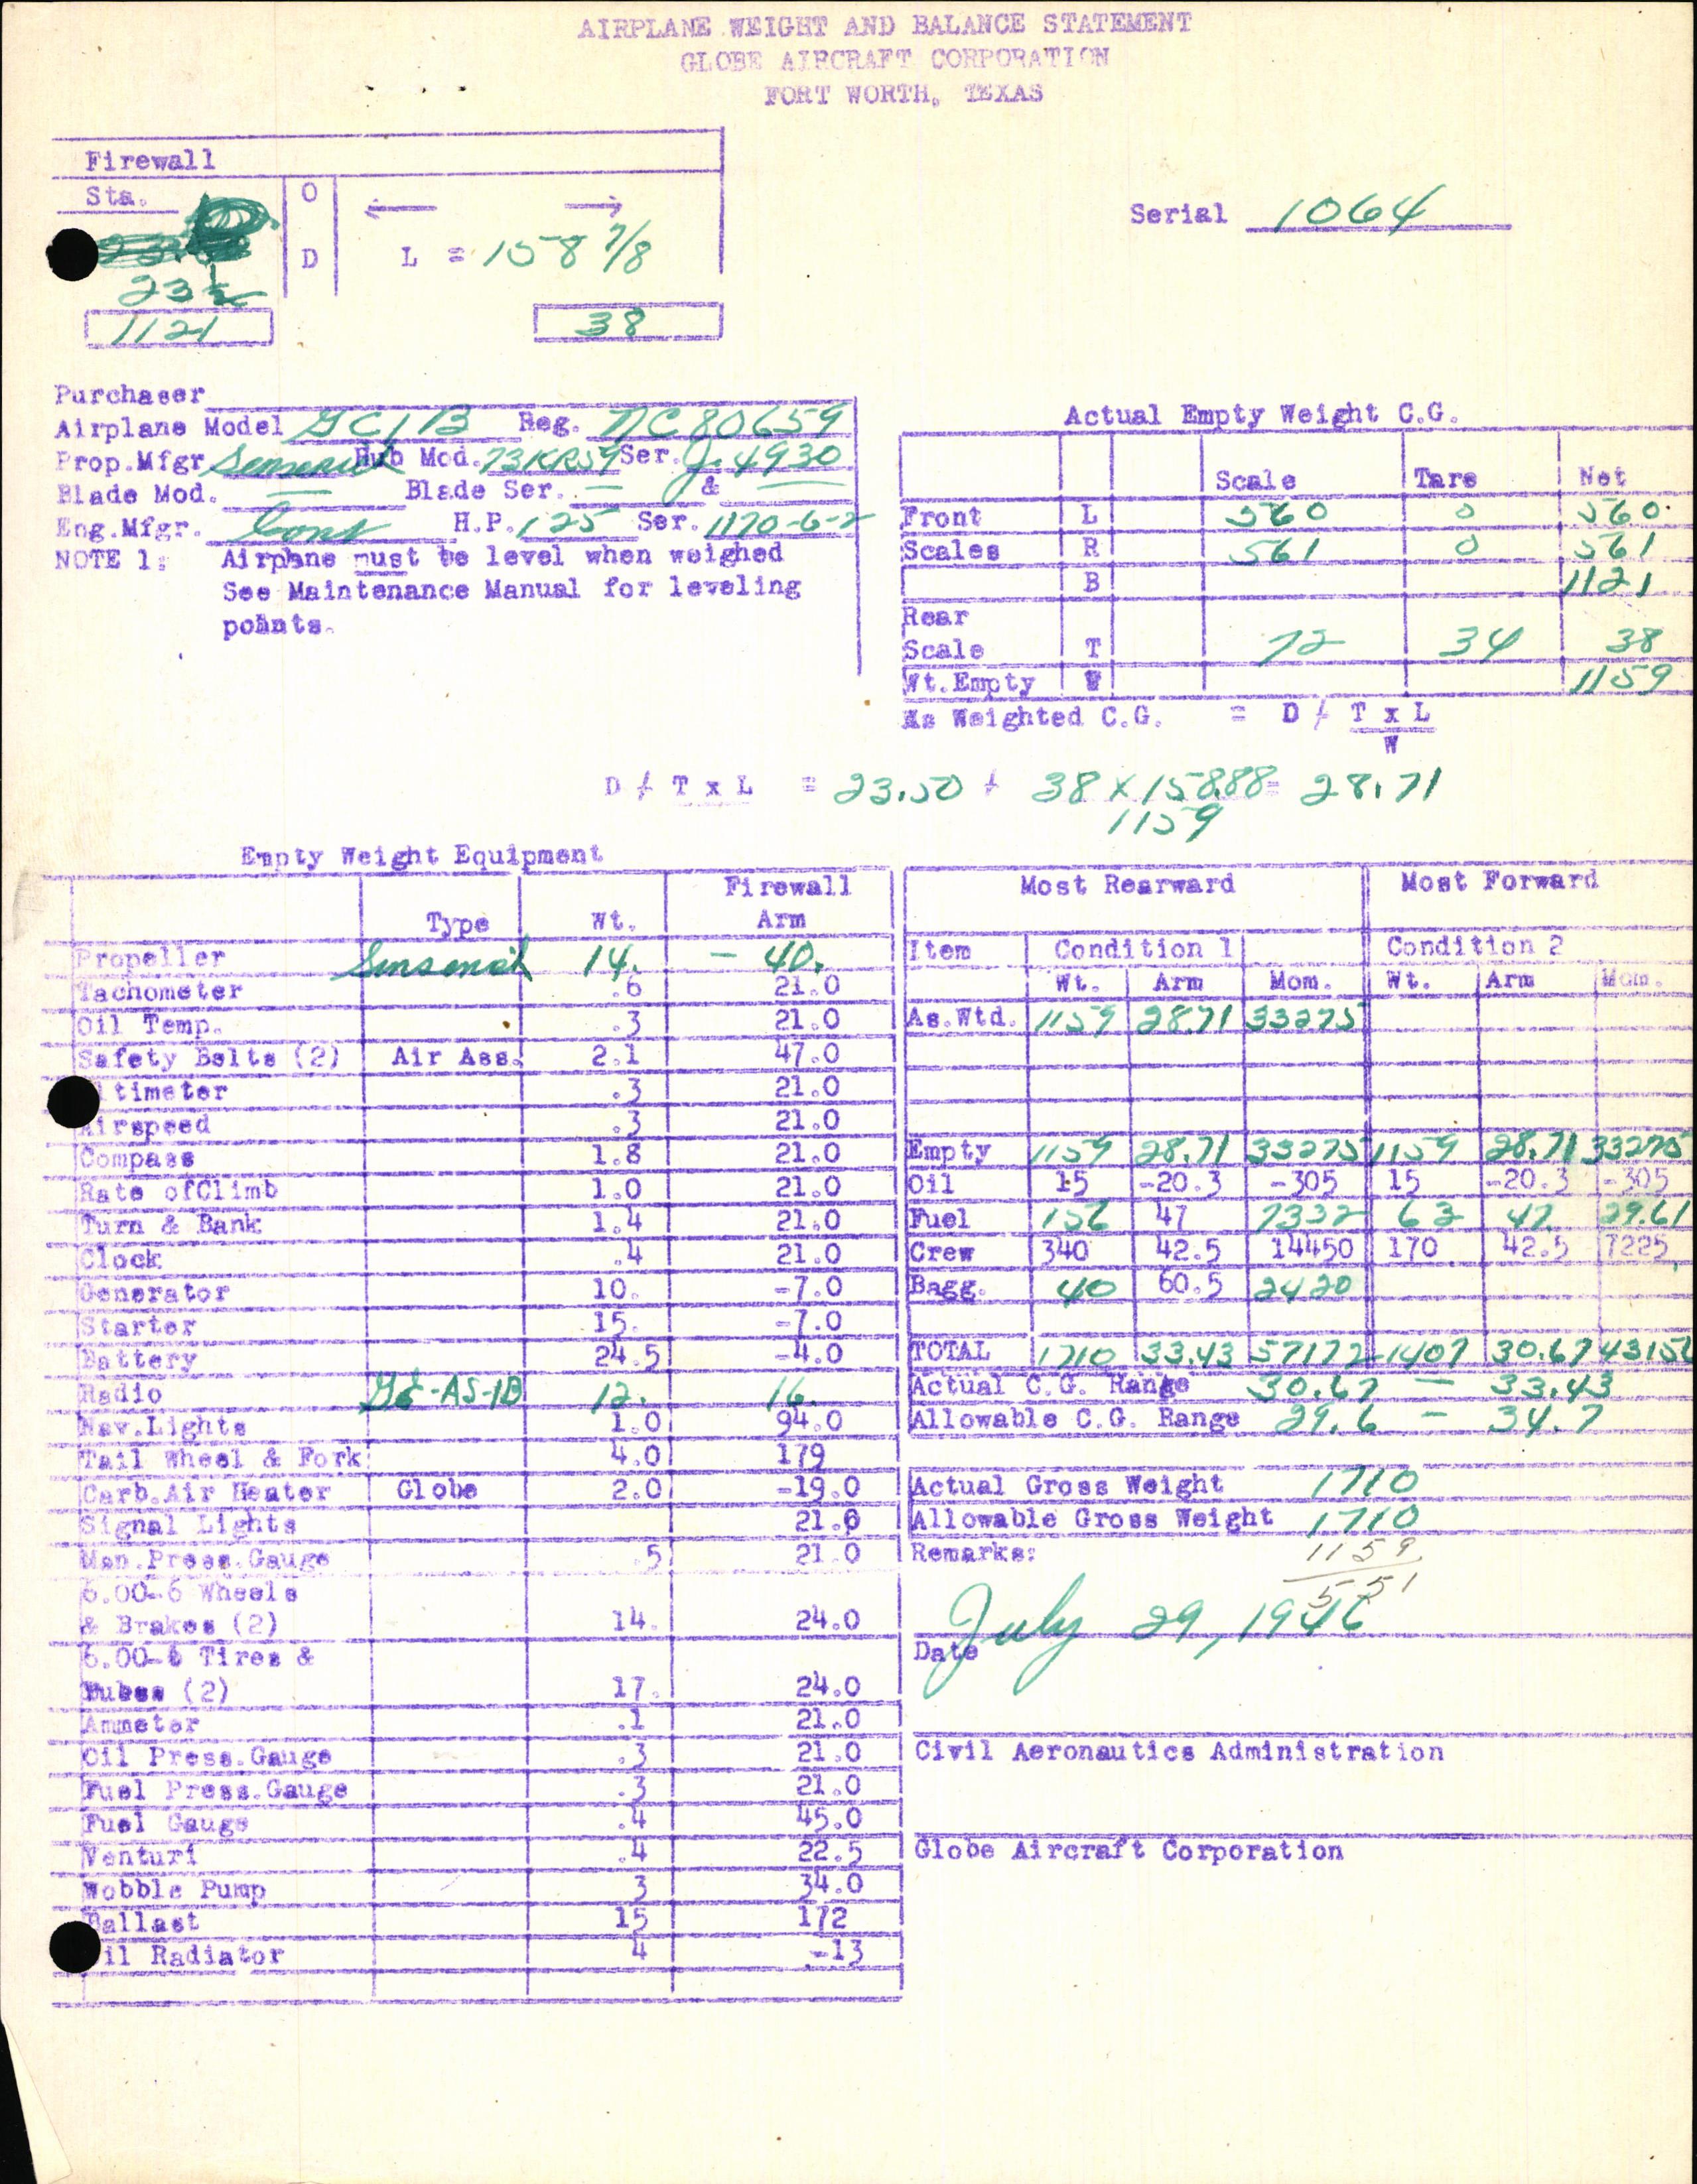 AIRPLANE WEIGHT AND BALANCE STATEMENT
GLOBE AIRCRAFT CORPORATION
FORT WORTH, TEXAS
Firewall
Sta. O ← →
D L = 158 7/8
23 1/2
1121 38
Serial 1064
Purchaser
Airplane Model GC1B Reg. NC80659
Prop.Mfgr Sensenich Hub Mod. 73KR59 Ser. J. 4930
Blade Mod. — Blade Ser. — & —
Eng.Mfgr. Cont H.P. 125 Ser. 1170-6-2
NOTE 1: Airplane must be level when weighed
See Maintenance Manual for leveling
points.
Actual Empty Weight C.G.
Scale Tare Net
Front L 560 0 560
Scales R 561 0 561
B 1121
Rear
Scale T 72 34 38
Wt.Empty W 1159
As Weighted C.G. = D / T x L
W
D / T x L = 23.50 + 38 x 158.88 = 28.71
1159
Empty Weight Equipment
Type Wt. Firewall Arm
Propeller Sensenich 14. - 40.
Tachometer .6 21.0
Oil Temp. .3 21.0
Safety Belts (2) Air Ass. 2.1 47.0
ltimeter .3 21.0
Airspeed .3 21.0
Compass 1.8 21.0
Rate ofClimb 1.0 21.0
Turn & Bank 1.4 21.0
Clock .4 21.0
Generator 10. -7.0
Starter 15. -7.0
Battery 24.5 -4.0
Radio GE-AS-1B 12. 16.
Nav.Lights 1.0 94.0
Tail Wheel & Fork 4.0 179
Carb.Air Heater Globe 2.0 -19.0
Signal Lights 21.0
Man.Press.Gauge .5 21.0
6.00-6 Wheels
& Brakes (2) 14. 24.0
6.00-6 Tires &
Tubes (2) 17. 24.0
Ammeter .1 21.0
Oil Press.Gauge .3 21.0
Fuel Press.Gauge .3 21.0
Fuel Gauge .4 45.0
Venturi .4 22.5
Wobble Pump 3 34.0
Ballast 15 172
il Radiator 4 -13
Most Rearward Most Forward
Item Condition 1 Condition 2
Wt. Arm Mom. Wt. Arm Mom.
As.Wtd. 1159 28.71 33275
Empty 1159 28.71 33275 1159 28.71 33275
Oil 15 -20.3 -305 15 -20.3 -305
Fuel 156 47 7332 63 47 29.61
Crew 340 42.5 14450 170 42.5 7225
Bagg. 40 60.5 2420
TOTAL 1710 33.43 57172 1407 30.67 43156
Actual C.G. Range 30.67 — 33.43
Allowable C.G. Range 29.6 — 34.7
Actual Gross Weight 1710
Allowable Gross Weight 1710
Remarks: 1159
551
July 29, 1946
Date
Civil Aeronautics Administration
Globe Aircraft Corporation